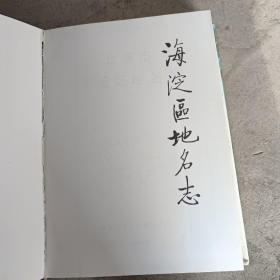 海淀區地名志